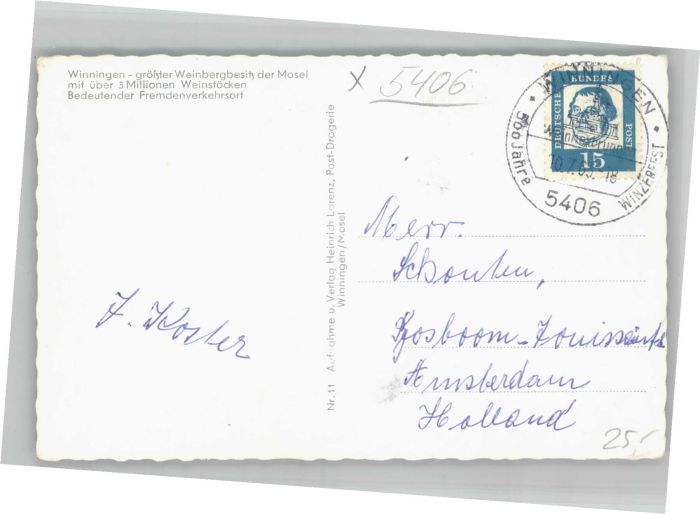 Winningen - größter Weinbergbesitz der Mosel
mit über 3 Millionen Weinstöcken
Bedeutender Fremdenverkehrsort
X 5406
DEUTSCHE BUNDES POST
15
WINNINGEN
500 Jahre WINZERFEST
5406
Nr. 11 Aufnahme u. Verlag Heinrich Lorenz, Post-Drogerie
Winningen/Mosel
J. Koster
Mevr.
Schouten,
Amsterdam
Holland
25,-